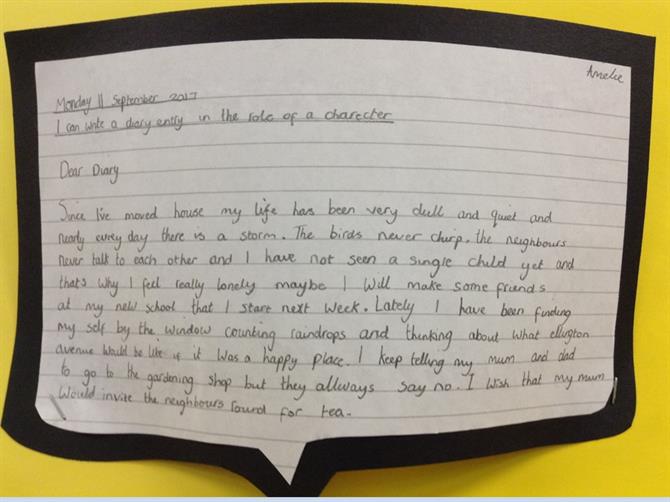 Amelie
Monday 11 September 2017
I can write a diary entry in the role of a charecter
Dear Diary
Since I've moved house my life has been very dull and quiet and
nearly evrey day there is a storm. The birds never chirp, the neighbours
never talk to each other and I have not seen a single child yet and
thats why I feel really lonely maybe I Will make some friends
at my new school that I start next week. Lately I have been finding
my self by the window counting raindrops and thinking about what ellington
avenue Would be like if it was a happy place. I keep telling my mum and dad
to go to the gardening shop but they allways say no. I wish that my mum
Would invite the neighbours round for tea.